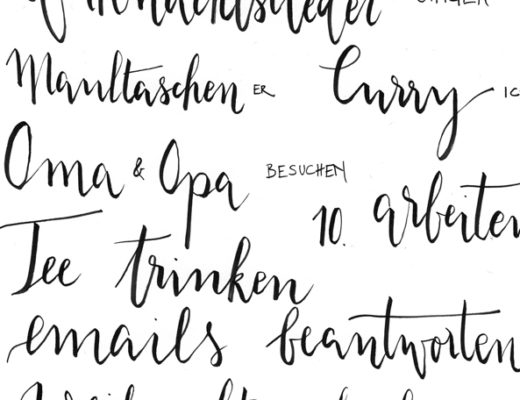 Maultaschen ER Curry
Oma & Opa BESUCHEN
10. arbeiten
Tee trinken
emails beantworten